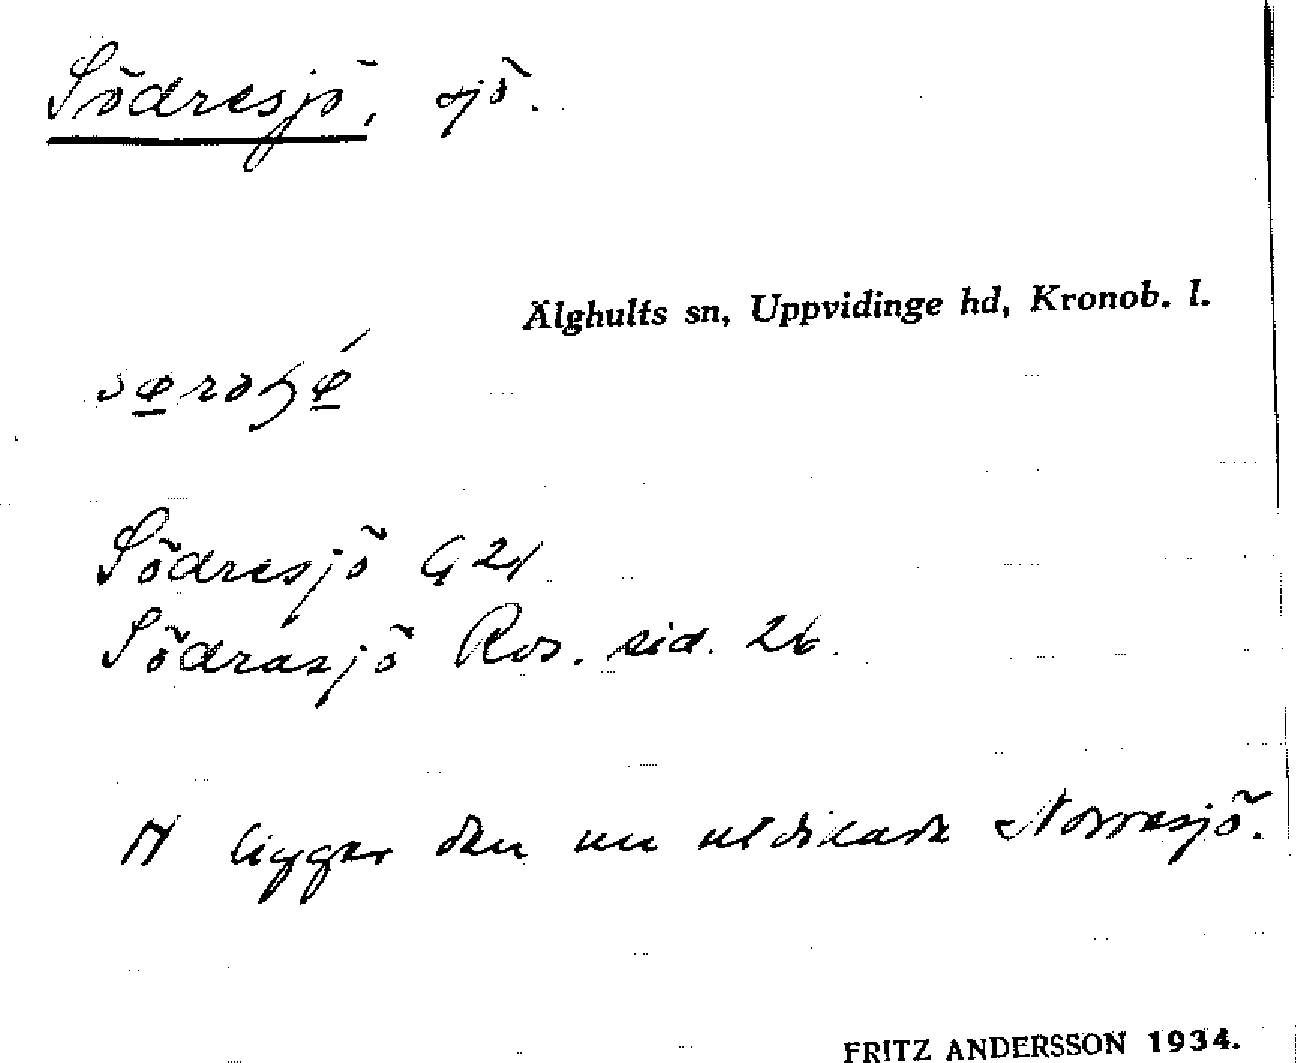 Södresjö, sjö.
Älghults sn, Uppvidinge hd, Kronob. l.
Södresjö G 21
Södrasjö Ros. sid. 26.
N ligger den nu utdikade Norresjö.
FRITZ ANDERSSON 1934.